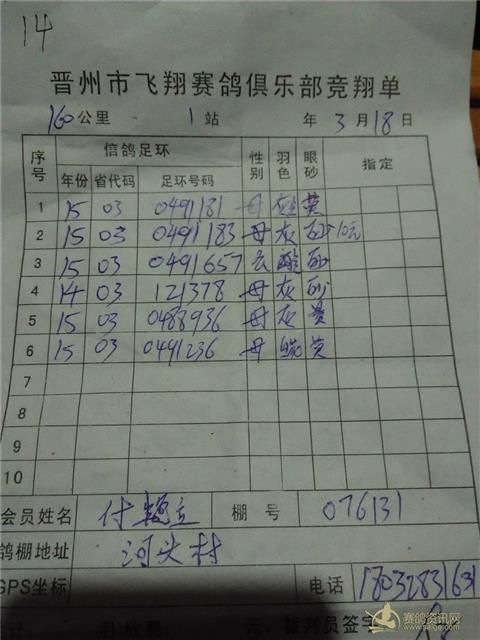 14
晋州市飞翔赛鸽俱乐部竞翔单
160公里 1站 年3月18日
序号 信鸽足环 性别 羽色 眼砂 指定
年份 省代码 足环号码
1 15 03 0491181 母 黄
2 15 03 0491183 母 灰 砂 10元
3 15 03 0491657 砂
4 14 03 121378 母 灰 砂
5 15 03 0488936 母 灰 黄
6 15 03 0491236 母 黄
7
8
9
10
会员姓名 付 立 棚号 076131
鸽棚地址 河头村
GPS坐标 电话 18032831631
元 裁判员签字
赛鸽资讯网
www.saige.com